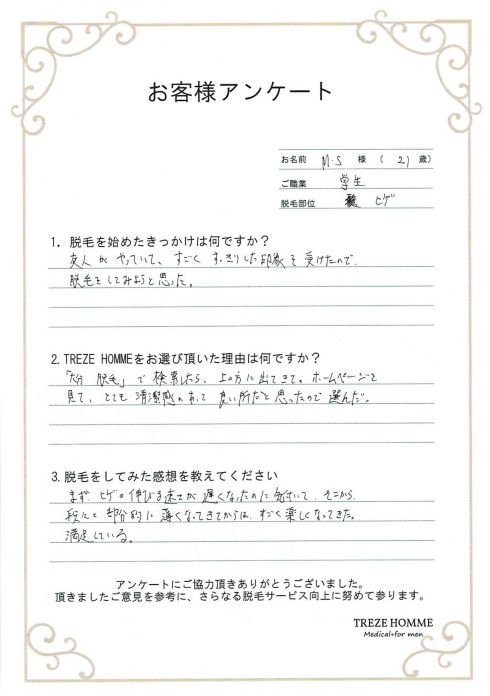 お客様アンケート
お名前 M.S 様 ( 21 歳)
ご職業 学生
脱毛部位 ヒゲ
1. 脱毛を始めたきっかけは何ですか?
友人がやっていて、すごくすっきりした印象を受けたので、
脱毛をしてみようと思った。
2.TREZE HOMMEをお選び頂いた理由は何ですか?
「大分 脱毛」で検索したら、上の方に出てきて。ホームページを
見て、とても清潔感があって良い所だと思ったので選んだ。
3.脱毛をしてみた感想を教えてください
まず、ヒゲの伸びる速さが遅くなったのに気付いて、そこから
段々と部分的に薄くなってきてからは、すごく楽しくなってきた。
満足している。
アンケートにご協力頂きありがとうございました。
頂きましたご意見を参考に、さらなる脱毛サービス向上に努めて参ります。
TREZE HOMME
Medical+for men